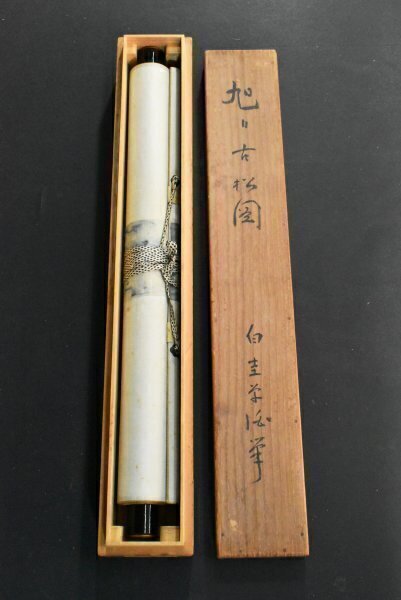 旭日古松図
白圭常徳筆